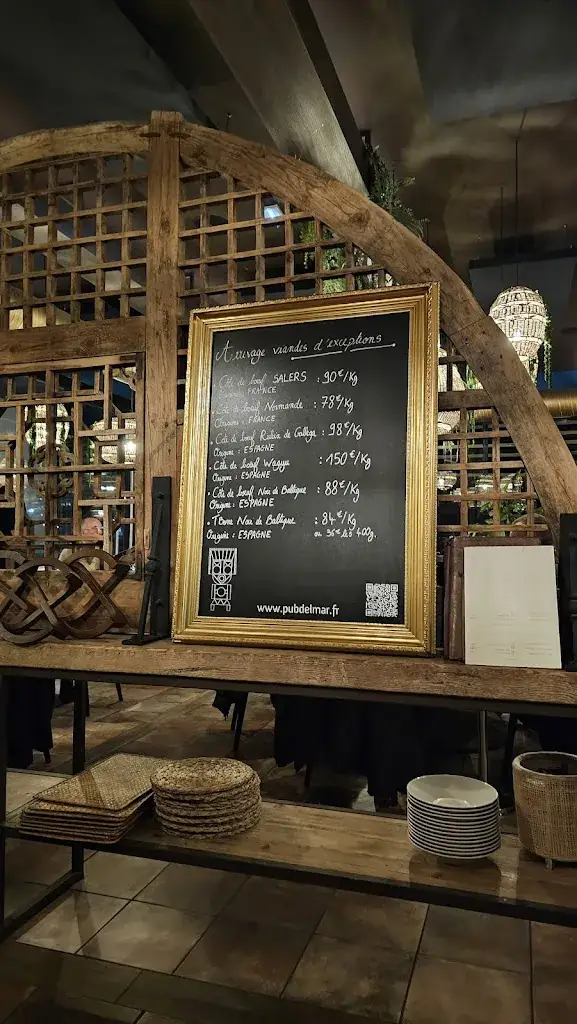 Arrivage viandes d'exceptions
. Côte de boeuf SALERS : 90€/Kg
Origine : FRANCE
. Côte de boeuf Normande : 78€/Kg
Origine : FRANCE
. Côte de boeuf Rubia de Gallega : 98€/Kg
Origine : ESPAGNE
. Côte de boeuf Wagyu : 150€/Kg
Origine : ESPAGNE
. Côte de boeuf Noir de Baltique : 88€/Kg
Origine : ESPAGNE
. TBone Noir de Baltique : 84€/Kg
Origine : ESPAGNE ou 36€ les 400g.
www.pubdelmar.fr